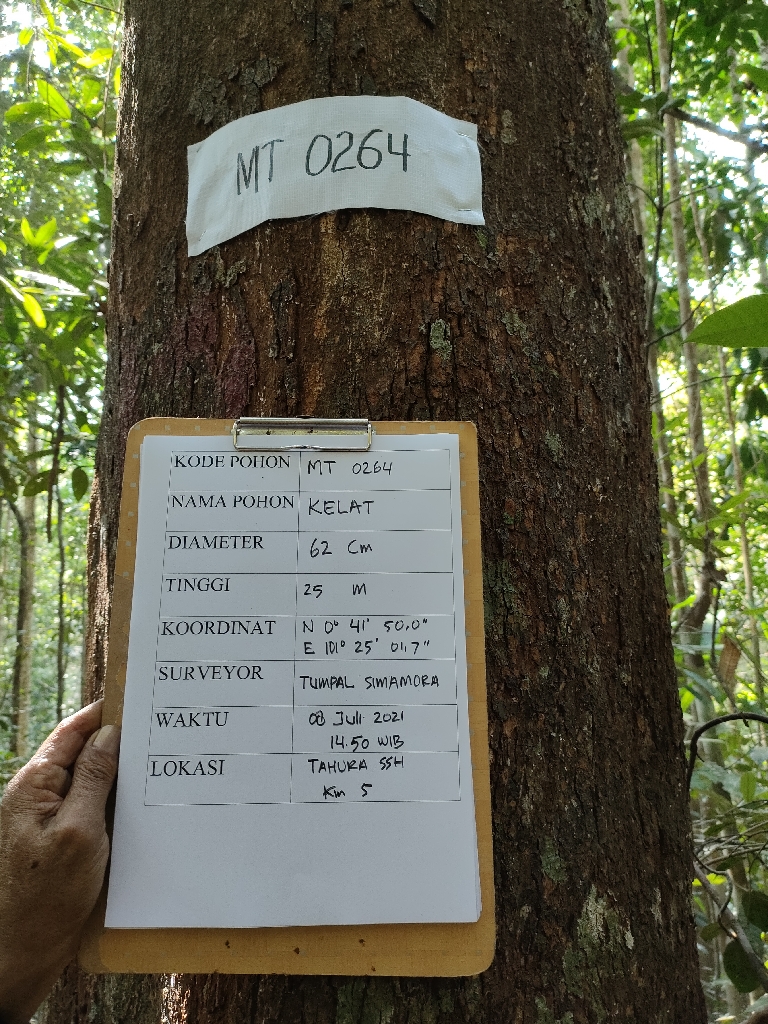 MT 0264
KODE POHON MT 0264
NAMA POHON KELAT
DIAMETER 62 Cm
TINGGI 25 M
KOORDINAT N 0° 41' 50.0"
E 101° 25' 01.7"
SURVEYOR TUMPAL SIMAMORA
WAKTU 08 Juli 2021
14.50 WIB
LOKASI TAHURA SSH
Km 5